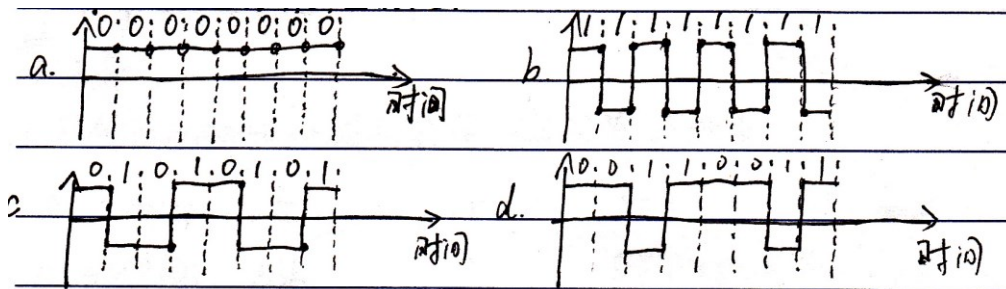 0 0 0 0 0 0 0 0
a.
时间
1 1 1 1 1 1 1 1
b.
时间
0 1 0 1 0 1 0 1
c
时间
0 0 1 1 0 0 1 1
d.
时间